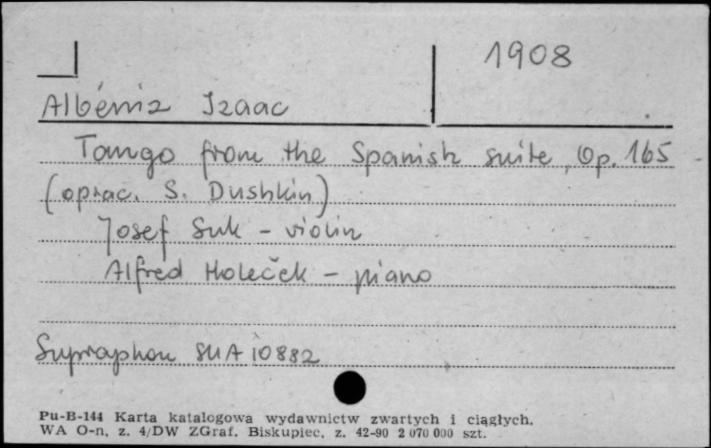 1908
Albéniz Izaac
Tango from the Spanish suite, Op. 165
(oprac. S. Dushkin)
Josef Suk - violin
Alfred Holeček - piano
Supraphon SUA 10882
Pu-B-144 Karta katalogowa wydawnictw zwartych i ciągłych.
WA O-n, z. 4/DW ZGraf. Biskupiec, z. 42-90 2 070 000 szt.